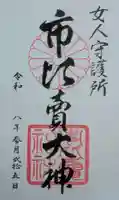 女人守護所
市比賣大神
令和
八年参月弐拾五日